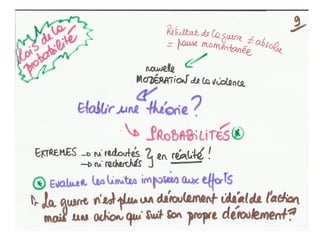 9
Lois de la
probabilité
Résultat de la guerre ≠ absolu
= pause momentanée
nouvelle
MODÉRATION de la violence
Etablir une théorie ?
↳ PROBABILITÉS *
EXTREMES → ni redoutés } en réalité !
→ ni recherchés
* Evaluer les limites imposées aux efforts
La guerre n'est plus un déroulement idéal de l'action
mais une action qui suit son propre déroulement ?